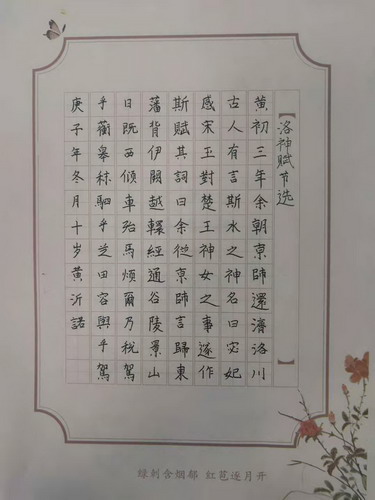 【洛神赋节选】
黄初三年余朝京師還濟洛川
古人有言斯水之神名曰宓妃
感宋玉對楚王神女之事遂作
斯賦其詞曰余從京師言歸東
藩背伊闕越轘經通谷陵景山
日既西傾車殆馬煩爾乃税駕
乎蘅皋秣駟乎芝田容與乎駕
庚子年冬月十岁黄沂諾
綠刺含烟郁 红苞逐月开